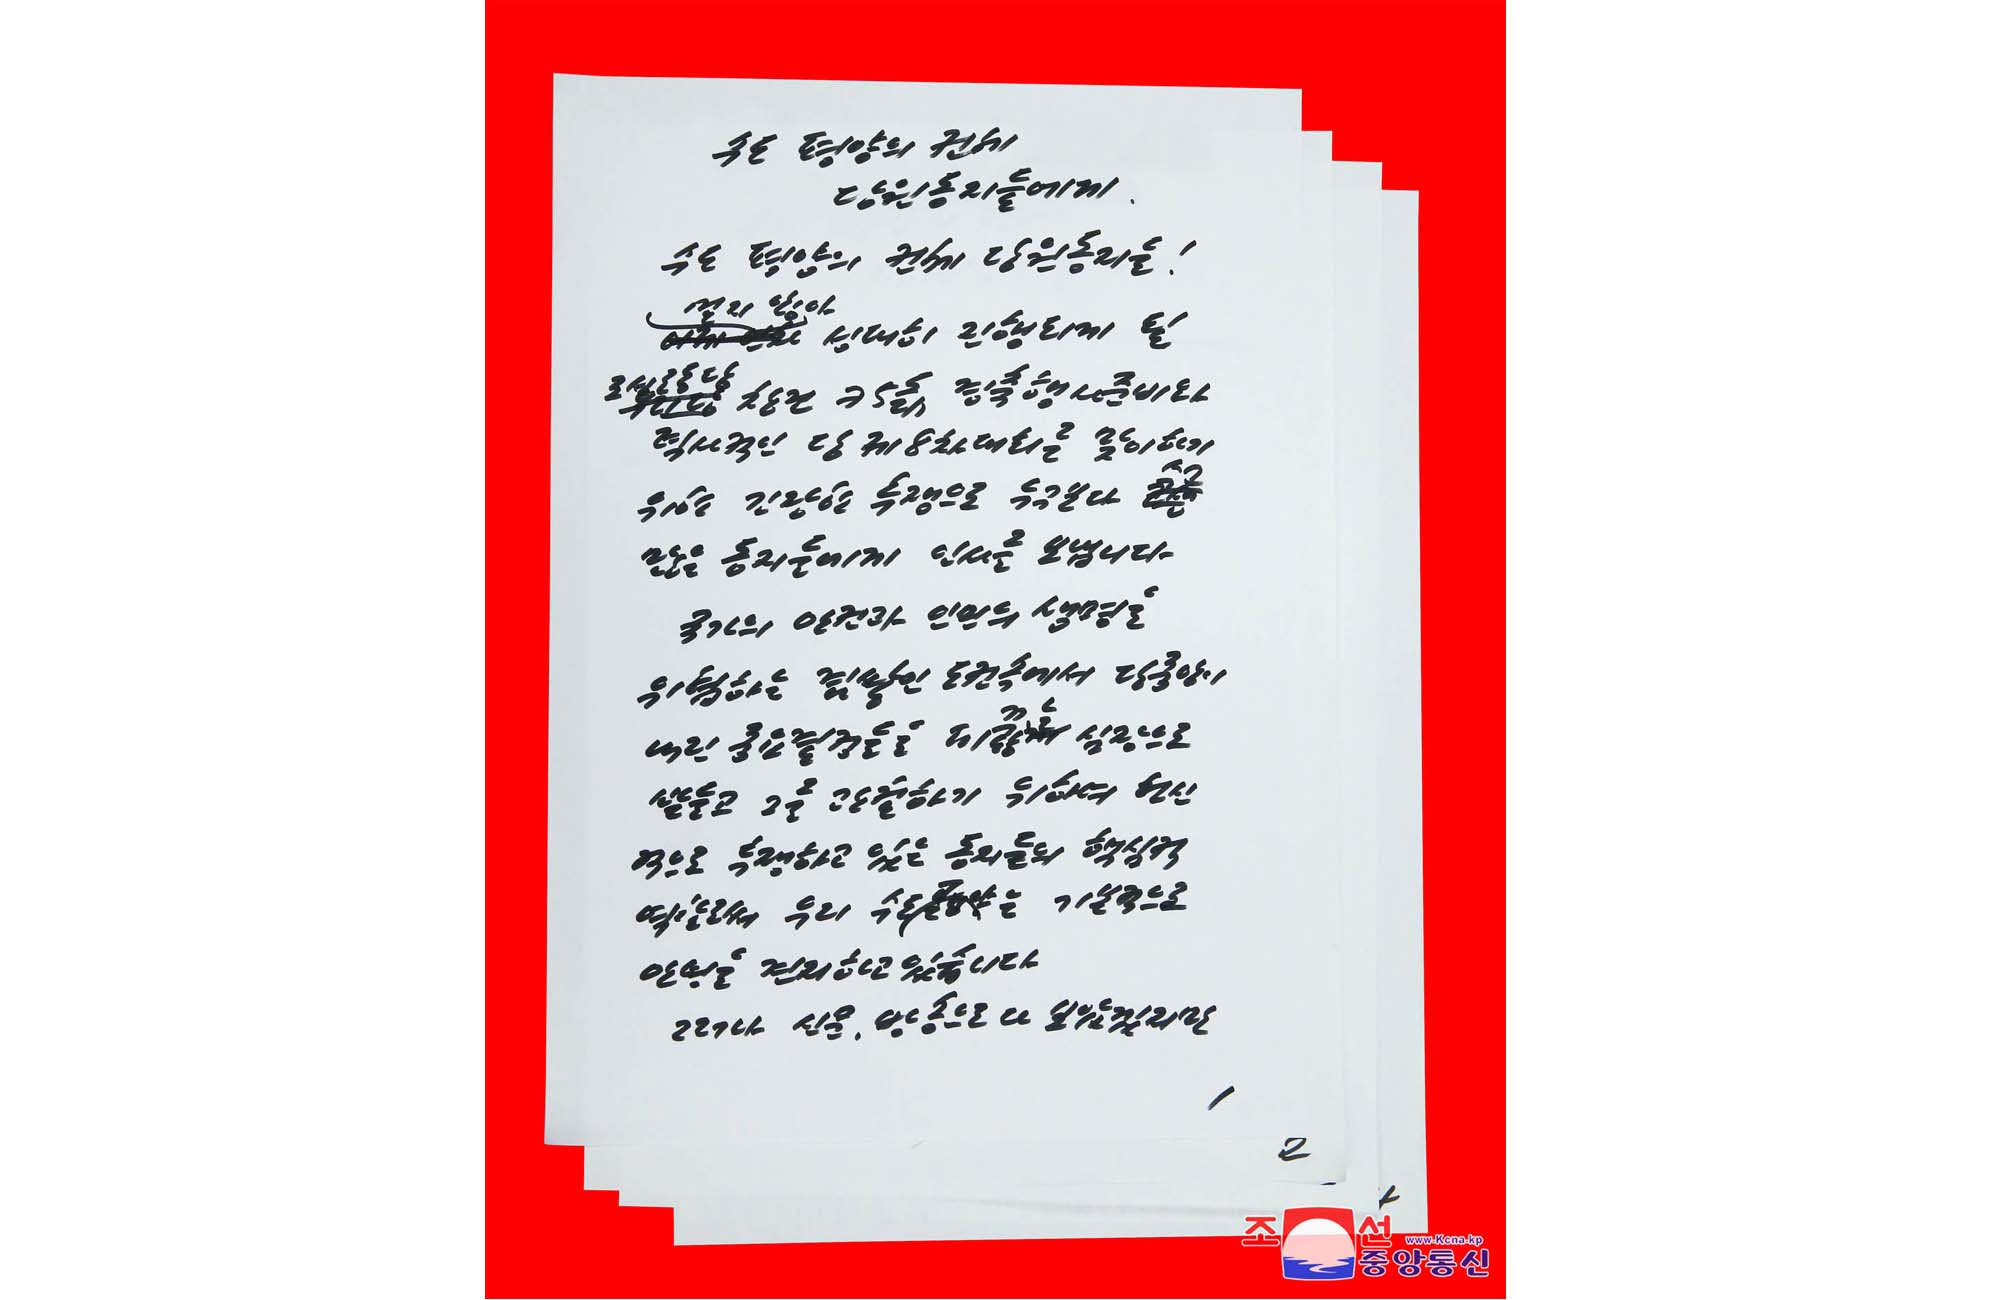 수도 평양의 전체
당원동지들에게.
수도 평양의 전체 당원동지들!
멀지 않아
성대히 진행되게 될
조선로동당
창건 75돐 경축행사준비와
력사적인 당 제8차대회를 맞이하기
위한 긴장한 투쟁으로 누구보다 수고
많은 동지들에게 인사를 보냅니다
국가의 안전과 인민의 생명을
위협하는 겹쌓인 도전속에서 당중앙이
내린 중요결정들을 심장으로
받들고 그를 관철하기 위하여 헌신
적으로 투쟁하고 있는 동지들의 핵심적
역할로하여 우리 기본적으로
안정을 견지하고 있습니다
그러나 신문, 방송으로 보았겠지만
1
2
조선
www.Kcna.kp
중앙통신